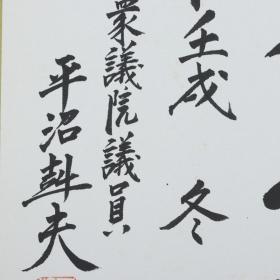 壬戌 冬
衆議院議員
平沼赳夫